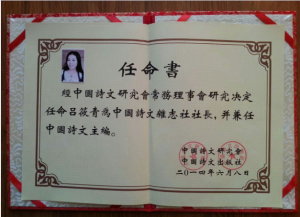 任命書
經中國詩文研究會常務理事會研究決定
任命呂筱青為中國詩文雜志社社長，并兼任
中國詩文主編。
中國詩文研究會
中國詩文出版社
二〇一四年六月八日